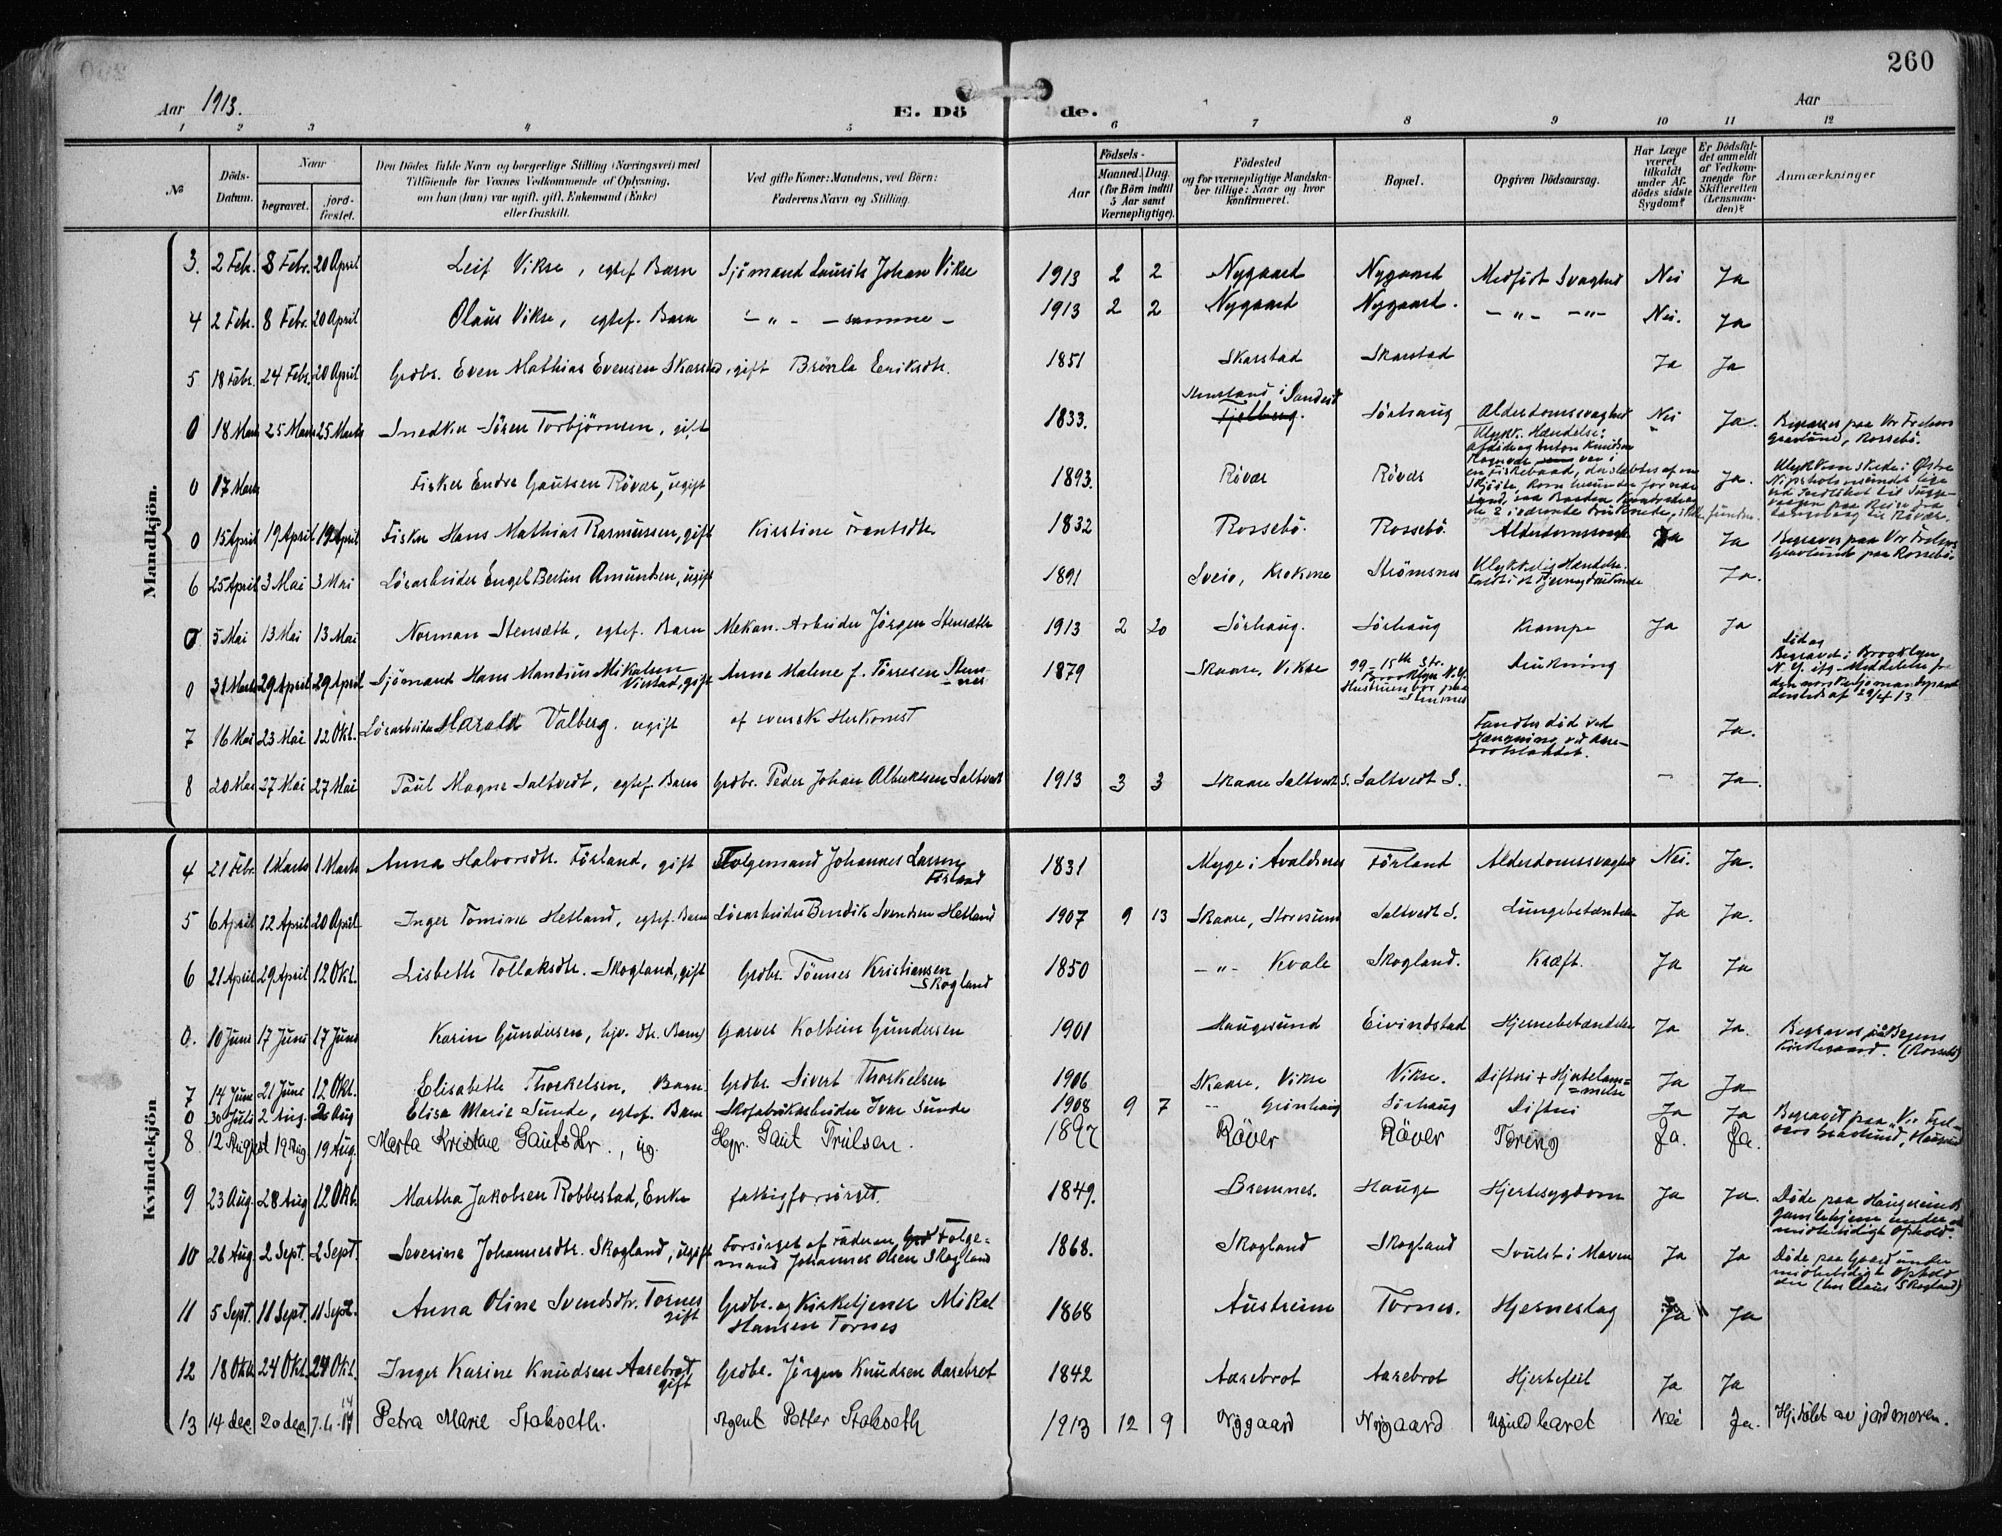 260
Aar 1913.
E. Döde.
Aar
1 2 3 4 5 6 7 8 9 10 11 12
No
Döds-Datum.
Naar
begravet.
jord-fæstet.
Den Dödes fulde Navn og borgerlige Stilling (Næringsvei) med
Tilföiende for Voxnes Vedkommende af Oplysning,
om han (hun) var ugift, gift, Enkemand (Enke)
eller fraskilt.
Ved gifte Koner: Mandens, ved Börn:
Faderens Navn og Stilling.
Födsels-
Aar
Maaned. Dag.
(for Börn indtil
5 Aar samt
Værnepligtige).
Födested
og for værnepligtige Mandskaber tillige: Naar og hvor
konfirmeret.
Bopæl.
Opgiven Dödsaarsag.
Har Læge
været
tilkaldt
under Afdödes sidste
Sygdom?
Er Dödsfaldet anmeldt
af Vedkommende for
Skifteretten
(Lensmanden)?
Anmærkninger
Mandkjön.
3. 2 Feb. 8 Febr. 20 April Leif Vikse, egtef. Barn Sjömand Laurits Johan Vikse 1913 2 2 Nygaard Nygaard Medfödt Svaghed Nei Ja
4 2 Feb. 8 Febr. 20 April Olaus Vikse, egtef. Barn - " - - samme - 1913 2 2 Nygaard Nygaard. - " - - " - Nei. Ja
5 18 Febr. 24 Febr. 20 April Grdbr. Even Mathias Evensen Skarstad, gift Brönla Eriksdtr. 1851 Skarstad Skarstad Ja Ja
0 18 Marts 25 Marts 25 Marts Snedker Sören Torbjörnsen, gift 1833. i Sandeid Fjelberg. Sörhaug Alderdomssvaghed Nei Ja. Begraves paa Vor Frelsers
Gravlund, Rossebö.
0 17 Marts Fisker Endre Gautsen Rövær, ugift 1893. Rövær Rövær Ulykk. Hændelse:
Afdöde og Anton Knudsen
Rövær var i
en Fiskebaad, der slæbtes af en
Skjöite, Kom herunder for nær
Land, saa Baaden kantrede og
de 2 i værende druknede, ikke funden. Ja.
0 15 April 19 April 19 April Fisker Hans Mathias Rasmussen, gift Kirstine Frantsdtr 1832 Rossebö. Rossebö. Alderdomssvagh. Ja Ja Begraves paa Vor Frelsers
Gravlund paa Rossebö.
6 25 April 3 Mai 3 Mai Lösarbeider Engel Bertin Amundsen, ugift 1891 Sveio, Strömsnes Ulykkelig Hændelse. Ja.
0 5 Mai 13 Mai 13 Mai Norman Stensæth, egtef. Barn Mekan. Arbeider Jörgen Stensæth 1913 2 20 Sörhaug. Sörhaug Krampe Ja Ja
0 31 Marts 29 April 29 April Sjömand Hans Mandius Mikalsen
Vikstad, gift Anne Malene f. Törresen Stemnes 1879 Skaare, Vikse 99 - 15th Str.
Brooklyn N.Y.
Hustruen bor paa
Stemnes Drukning Död og
Begravet i Brooklyn
N.Y. ifg. Meddelelse fra
den norske Sjömandspræst
dersteds af 29/4 13
7 16 Mai 23 Mai 12 Okt. Lösarbeider Harald Valberg. ugift af svensk Herkomst Fandtes död ved
Hængning ved Aarebrotstandet. Ja.
8 20 Mai 27 Mai 27 Mai Paul Magne Saltvedt, egtef. Barn Grdbr. Peder Johan Albrektsen Saltvedt 1913 3 3 Skaare Saltvedt S. Saltvedt S. - Ja.
Kvindekjön
4 21 Febr. 1 Marts 1 Marts Anna Halvorsdtr. Förland, gift Folgemand Johannes Larsen
Förland 1831 Myge i Avaldsnes Förland Alderdomssvaghed Nei. Ja.
5 6 April 12 April 20 April Inger Tomine Hetland, egtef. Barn Lösarbeider Bendik Svendsen Hetland 1907 9 13 Skaare, Storesund Saltvedt S. Lungebetændelse Ja Ja.
6 21 April 29 April 12 Okt. Lisbeth Tollaksdtr. Skogland, gift Grdbr. Tönnes Kristiansen
Skogland 1850 - " - Kvale Skogland. Kræft. Ja Ja
0. 10 Juni 17 Juni 17 Juni Karin Gundersen, hjv. dtr. Barn Garver Kolbein Gundersen 1901 Haugesund Eivindstad Hjernebetændelse Ja Ja. Begraves på Byens
Kirkegaard. (Rossebö)
7 14 Juni 21 Juni 12 Okt. Elisabeth Thorkelsen, Barn Grdbr. Sivert Thorkelsen 1906 Skaare, Vikse Vikse. Difteri + Hjertelammelse Ja Ja
0 30 Juli 2 Aug. 2 Aug Elisa Marie Sunde, egtef. Barn Skofabrikarbeider Ivar Sunde 1908 9 7 - " - Grönhaug Sörhaug Difteri Ja Ja Begravet paa "Vor Frelsers Gravlund, Haugesund
8 12 August 19 Aug 19 Aug. Marta Kristine Gautsdtr., ug. Hgr. Gaut Trulsen. 1897 Röver Röver Tæring Ja. Ja.
9 23 Aug. 28 Aug 12 Okt. Martha Jakobsen Robbestad, Enke fattigforsörget. 1849. Bremnes. Hauge Hjertesygdom Ja Ja. Döde paa Haugesunds
Gamlehjem under et
midlertidigt Ophold.
10 26 Aug. 2 Sept. 2 Sept. Severine Johannesdtr. Skogland, ugift Forsörget af Faderen, Grd Folgemand Johannes Olsen Skogland 1868. Skogland Skogland Svulst i Maven Ja Ja Döde paa Gaard under
midlertidigt Ophold
der (hos Claus Skogland)
11 5 Sept. 11 Sept. 11 Sept. Anna Oline Svendsdtr. Tornes
gift Grdbr. og Kirketjener Mikal
Hansen Tornes 1868 Austreim Tornes. Hjerneslag Ja Ja
12 18 Okt. 24 Okt. 24 Okt. Inger Karine Knudsen Aarebrot,
gift Grdbr. Jörgen Knudsen Aarebrot 1842 Aarebrot Aarebrot Hjertefeil Ja Ja
13 14 dec. 20 dec. 7.6.14 Petra Marie Stakseth. Agent Petter Stakseth 1913 12 9 Nygaard Nygaard Ufuldbaaret Nei Ja. Hjbdöbt av jordmoren.